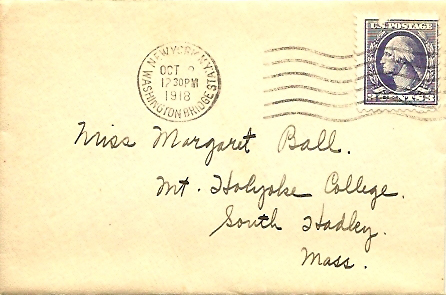 NEW YORK, N.Y.
WASHINGTON BRIDGE STA.
OCT
12 30PM
1918
U.S. POSTAGE
Miss Margaret Ball.
Mt. Holyoke College.
South Hadley.
Mass.